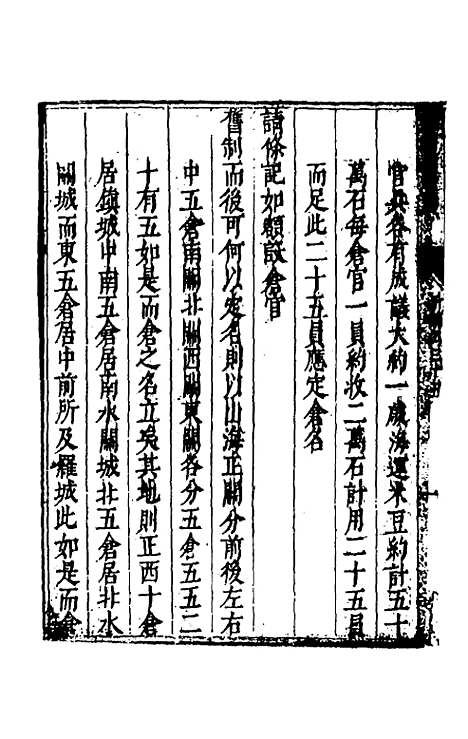 官與各有成議大約一歲海運米豆約計五十
萬石每倉官一員約收二萬石計用二十五員
而足此二十五員應定倉名
請條記如額設倉官
舊制而後可何以定名則以山海正關分前後左右
中五倉南關北關西關東關各分五倉五五二
十有五如是而倉之名立矣其地則正西十倉
居鎮城中南五倉居南水關城北五倉居北水
關城而東五倉居中前所及羅城此如是而倉